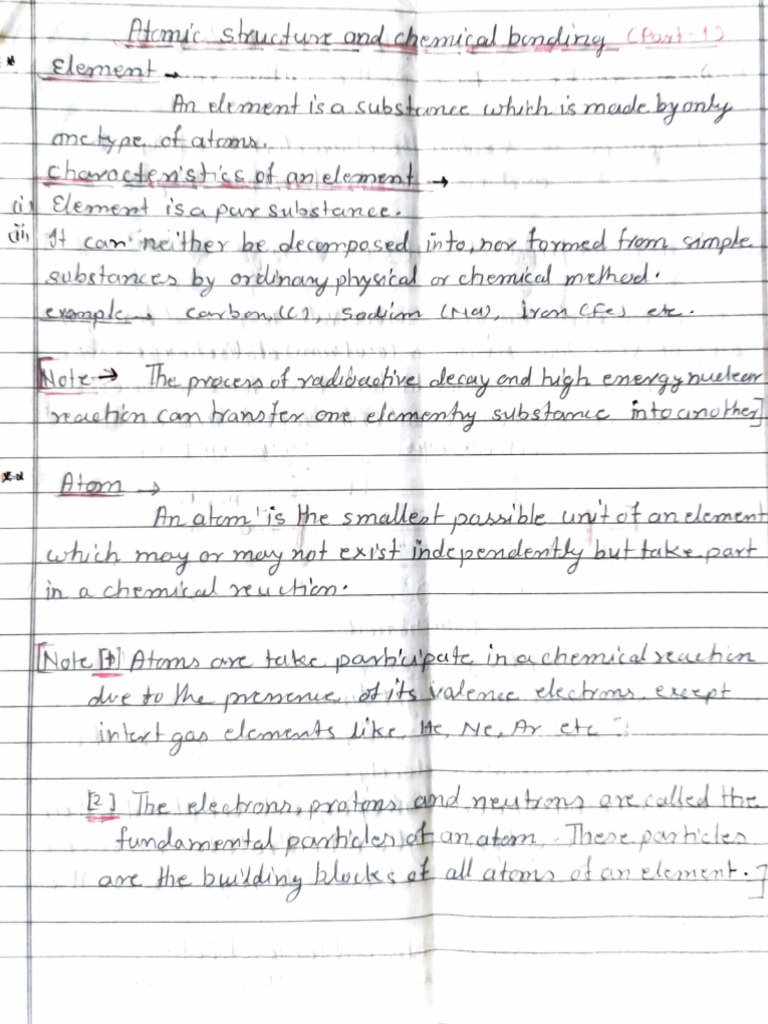 Atomic structure and chemical bonding (Part-1)
* Element →
An element is a substance which is made by only
one type of atoms.
Characteristics of an element →
(i) Element is a pur substance.
(ii) It can neither be decomposed into, nor formed from simple
substances by ordinary physical or chemical method.
example → Carbon, (C), Sodium (Na), iron (Fe) etc.
[Note → The process of radioactive decay and high energy nuclear
reaction can transfer one elementry substance into another]
** Atom →
An atom is the smallest possible unit of an element
which may or may not exist independently but take part
in a chemical reaction.
[Note [1] Atoms are take participate in a chemical reaction
due to the presence of its valence electrons, except
inert gas elements like, He, Ne, Ar etc
[2] The electrons, protons and neutrons are called the
fundamental particles of an atom. These particles
are the building blocks of all atoms of an element.]